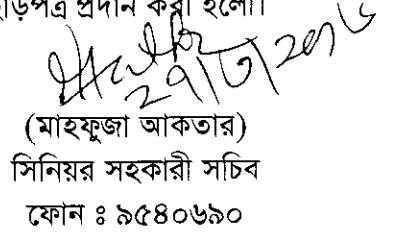 ছাড়পত্র প্রদান করা হলো।
২৭/৩/২০১৬
(মাহফুজা আকতার)
সিনিয়র সহকারী সচিব
ফোন ঃ ৯৫৪০৬৯০